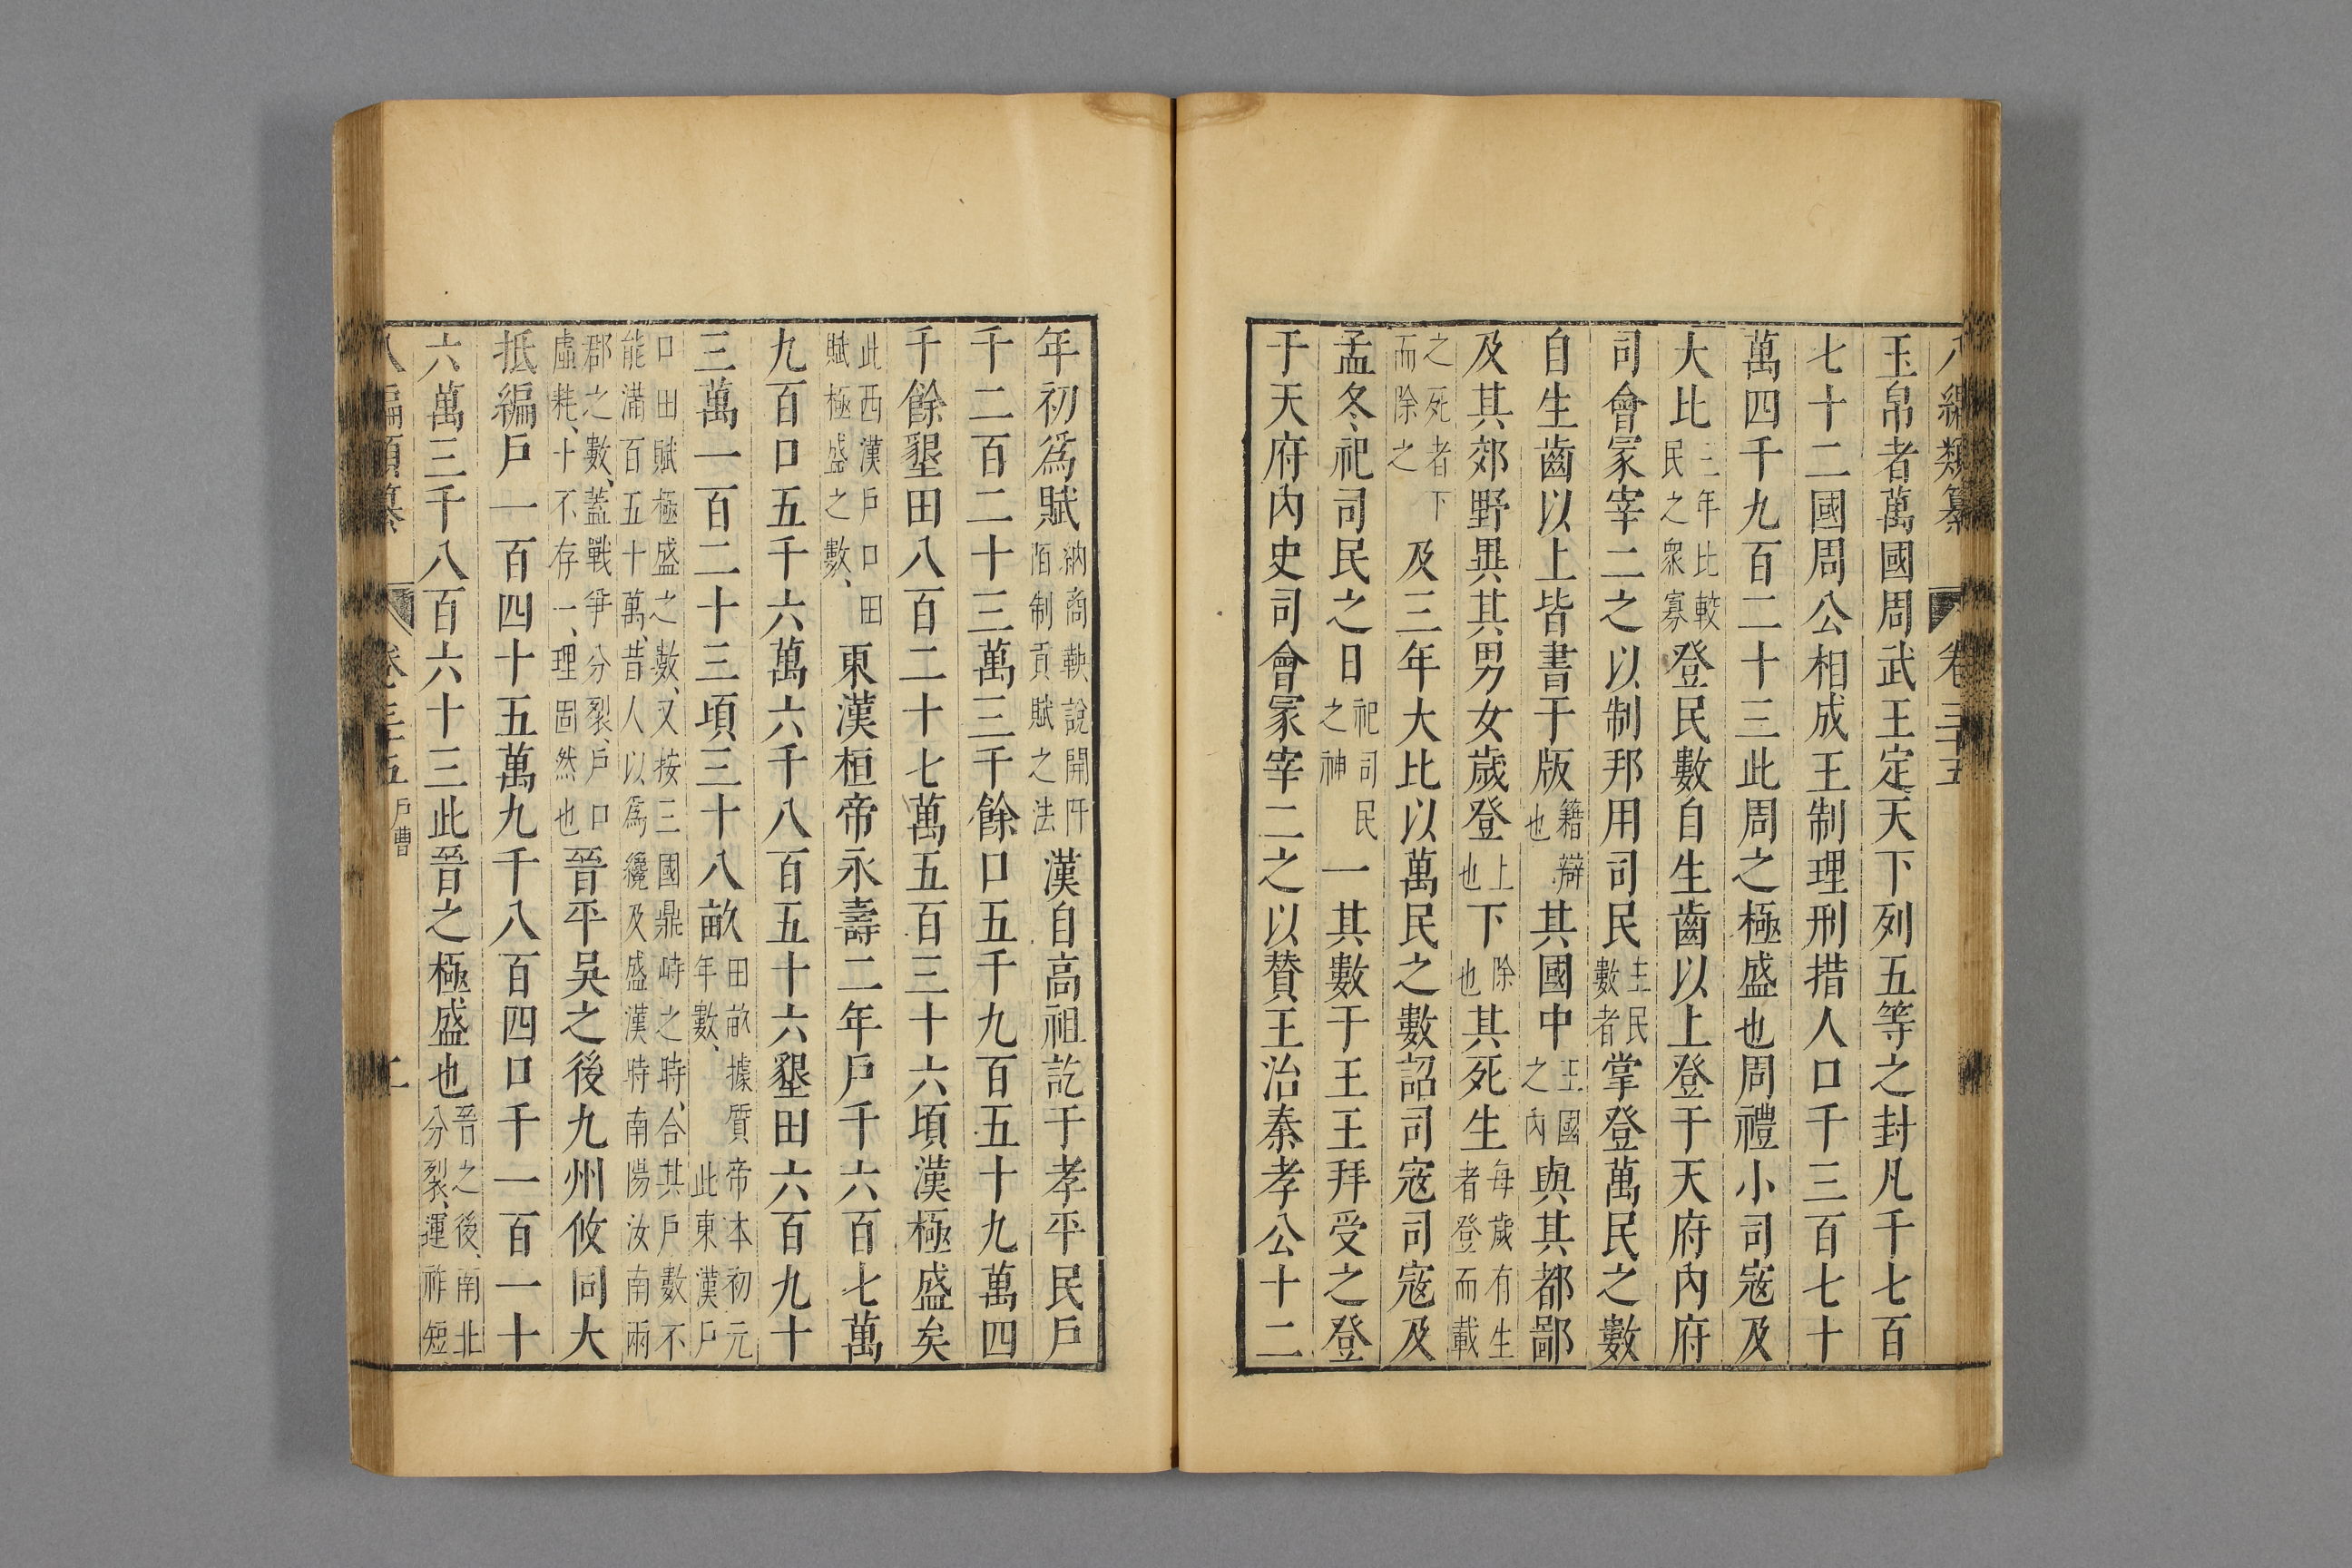 八編類纂 卷三十五
玉帛者萬國周武王定天下列五等之封凡千七百
七十二國周公相成王制理刑措人口千三百七十
萬四千九百二十三此周之極盛也周禮小司寇及
大比三年比較民之衆寡登民數自生齒以上登于天府內府
司會冢宰二之以制邦用司民主民數者掌登萬民之數
自生齒以上皆書于版籍辯也其國中王國之內與其都鄙
及其郊野異其男女歲登上也下除也其死生每歲有生者登而載
之死者下而除之及三年大比以萬民之數詔司寇司寇及
孟冬祀司民之日祀司民之神一其數于王王拜受之登
于天府內史司會冢宰二之以贊王治秦孝公十二
年初爲賦納商鞅說開阡陌制貢賦之法漢自高祖訖于孝平民戶
千二百二十三萬三千餘口五千九百五十九萬四
千餘墾田八百二十七萬五百三十六頃漢極盛矣
此西漢戶口田賦極盛之數、東漢桓帝永壽二年戶千六百七萬
九百口五千六萬六千八百五十六墾田六百九十
三萬一百二十三頃三十八畝田畝據質帝本初元年數、此東漢戶
口田賦極盛之數、又按三國鼎峙之時、合其戶數不能滿百五十萬、昔人以爲纔及盛漢時南陽汝南兩
郡之數、蓋戰爭分裂、戶口虛耗、十不存一、理固然也晉平吳之後九州攸同大
抵編戶一百四十五萬九千八百四口千一百一十
六萬三千八百六十三此晉之極盛也晉之後、南北分裂、運祚短
八編類纂 卷三十五 戶曹 二